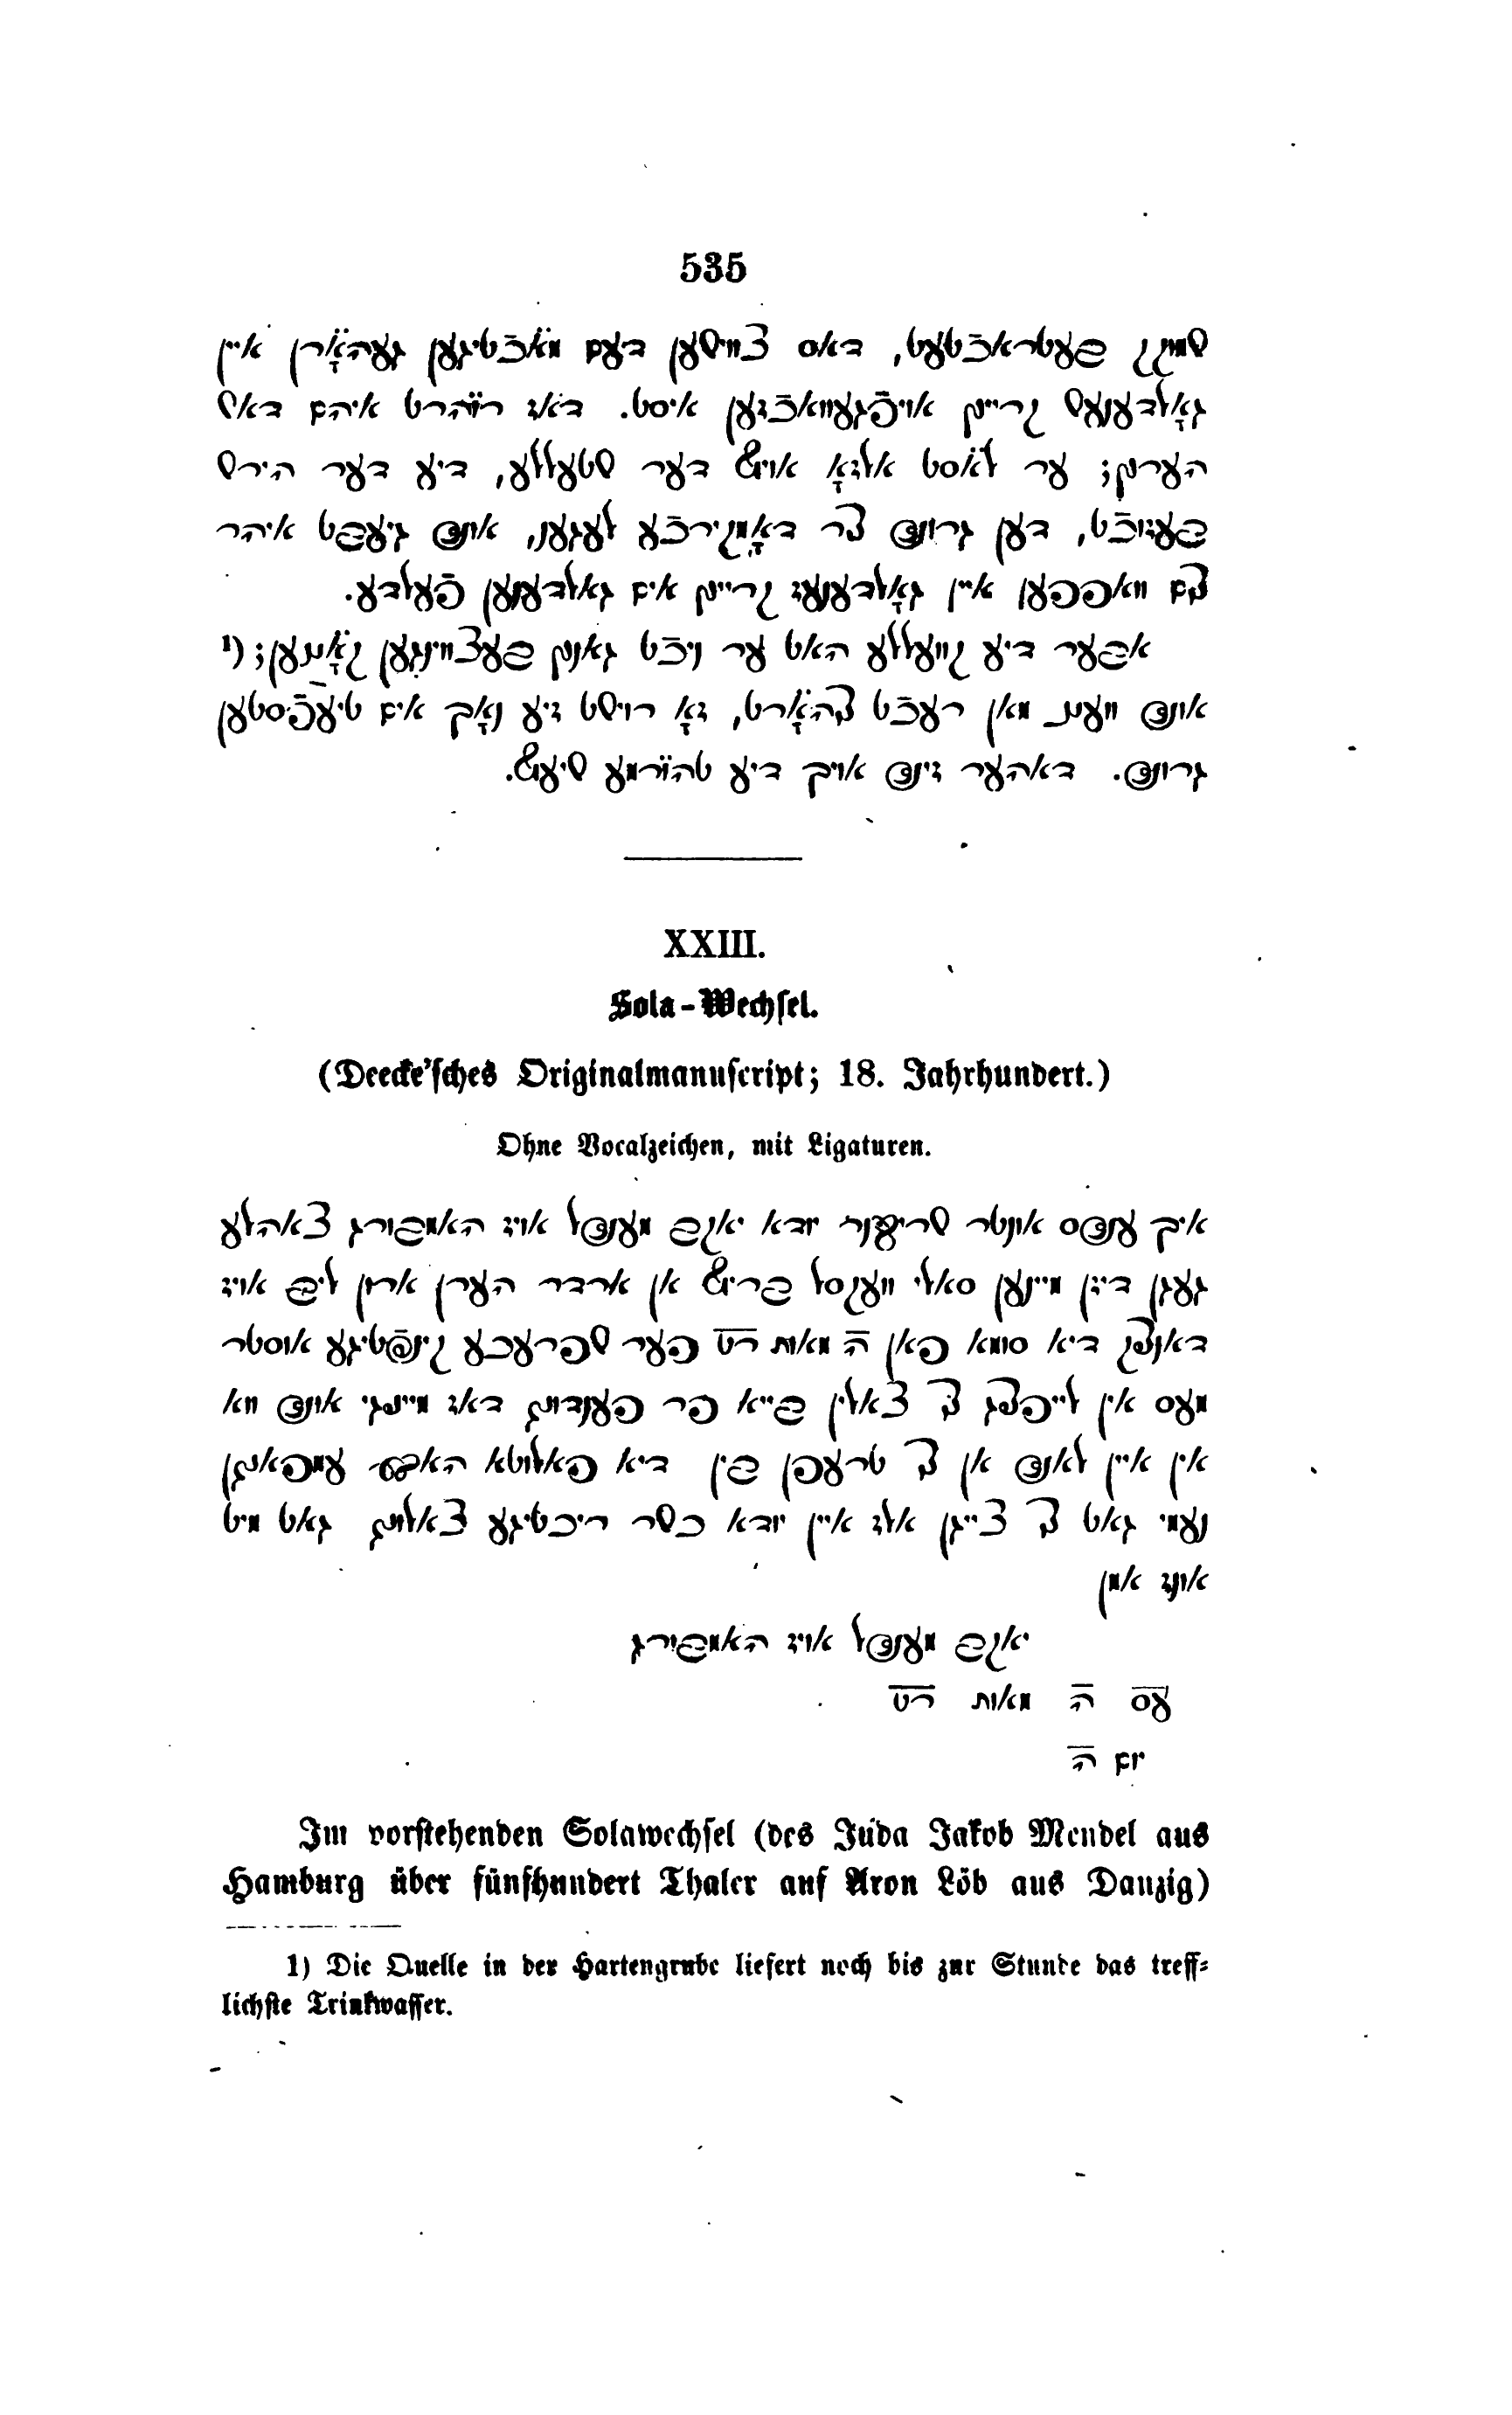 535
שמוק בעטראכֿטעט, דאס צווישען דעם מאֿכֿטיגען געהאָֿרן איין
גאָלדענעש קרייץ אויפֿגעוואכֿזען איסט. דאז רוֿהרט איהם דאש
הערץ; ער לאֿסט אלזאָ אויף דער שטעללע, דיע דער הירש
בעזוכֿט, דען גרונד צר דאָמקירכֿע לעגען, אונד גיעבט איהר
צם וואפפען איין גאָלדענעז קרייץ אים גאלדענען פֿעלדע.
אבער דיע קוועללע האט ער ניכֿט גאנץ בעצווינגען קאָֿנען; (¹
אונד ווענ מאן רעכֿט צהאָֿרט, זאָ רוישט זיע נאָך אים טיעֿפֿסטען
גרונד. דאהער זינד אויך דיע טהוֿרמע שיעף.
XXIII.
Sola-Wechsel.
(Deecke'sches Originalmanuscript; 18. Jahrhundert.)
Ohne Vocalzeichen, mit Ligaturen.
איך ענדס אונטר שריבער יודא יאקב מענדל אויז האמבורג צאהלע
געגן דיזן מיינען סאלי וועקסל בריף אן ארדר הערן ארון ליב אויז
דאנציק דיא סומא פאן ה̅ מאות ר̅ט̅ פער שפרעכע קינפֿטיגע אוסטר
מעס אין לייפציג צו צאלין בייא פר פענדונג דאז מייניגי אונד ווא
אין איין לאנד אן צו טרעפן בין דיא פאלוטא האב עמפאנגן
נעמי גאט צו צייגן אלז איין יודא כשר ריכטיגע צאלונג גאט מיט
אונז אמן
יאקב מענדל אויז האמבורג
ע̅ס̅ ה̅ מאות ר̅ט̅
יום ה̅
Im vorstehenden Solawechsel (des Juda Jakob Mendel aus
Hamburg über fünfhundert Thaler auf Aron Löb aus Danzig)
1) Die Quelle in der Hartengrube liefert noch bis zur Stunde das treff-
lichste Trinkwasser.